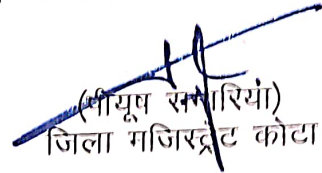 (पीयूष समारियां)
जिला मजिस्ट्रेट कोटा